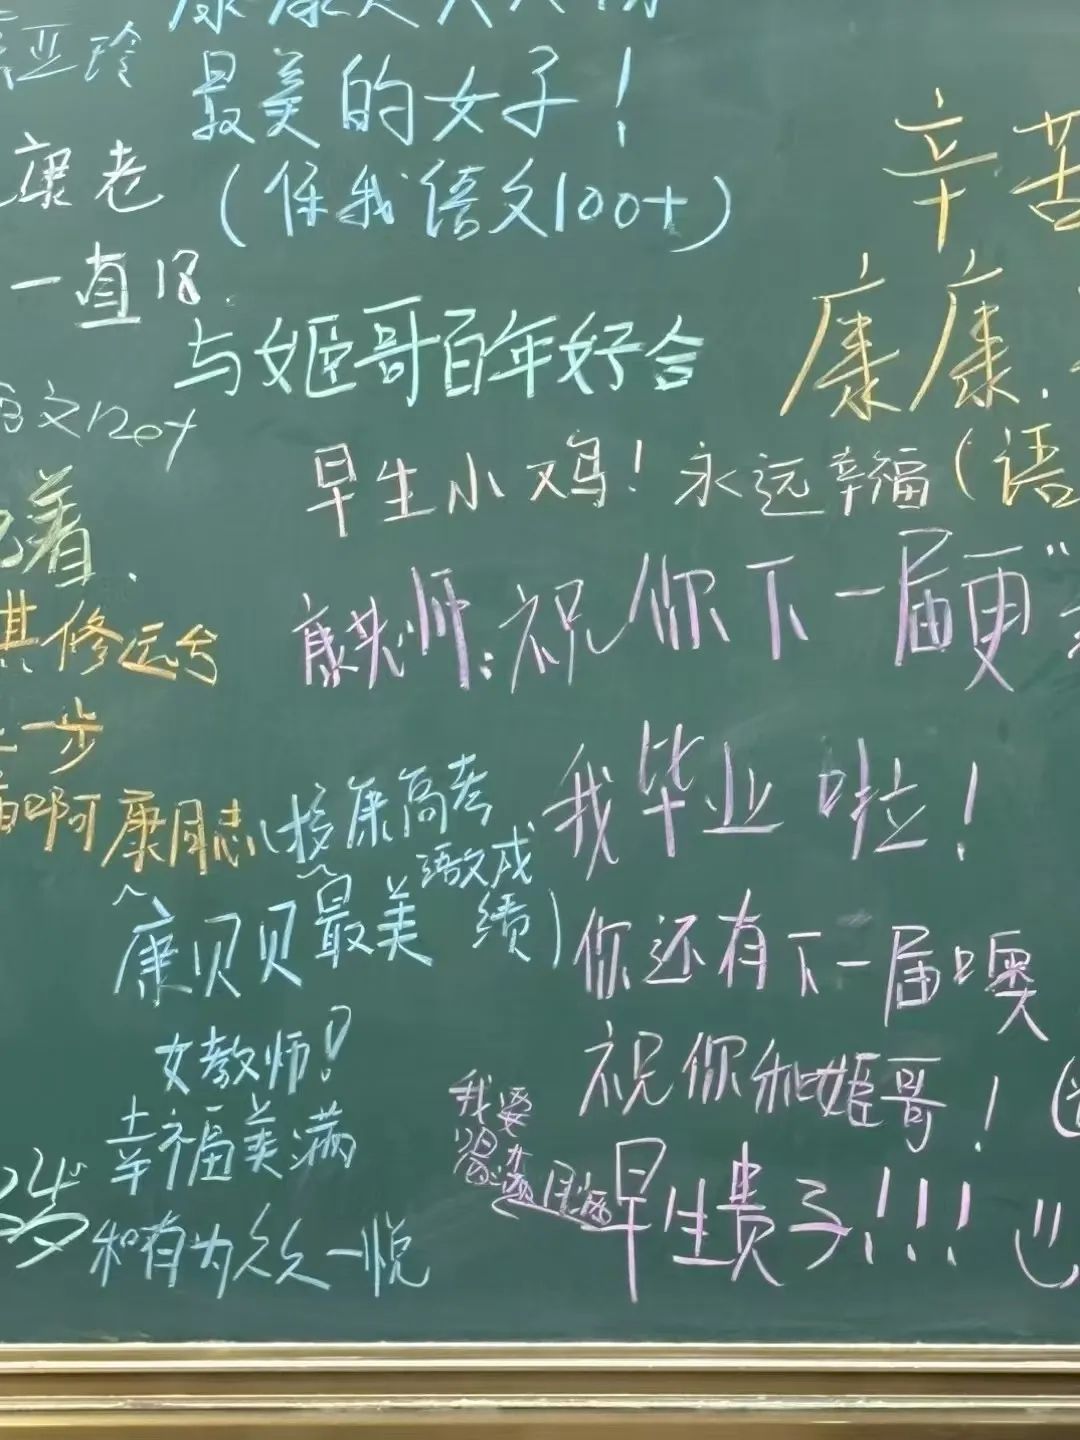 亚玲
最美的女子！
（保我语文100+）
康老
一直18.
辛苦
康康
与姬哥百年好合
文120+
早生小鸡！永远幸福（语
着.
康老师：祝你下一届更“
其修远兮
一步
啊康同志
（接康高考
语文成
绩）
我毕业啦！
康贝贝最美
女教师！
你还有下一届噢
祝你和姬哥！
幸福美满
我要
早生贵子！！！
和有为久久一悦